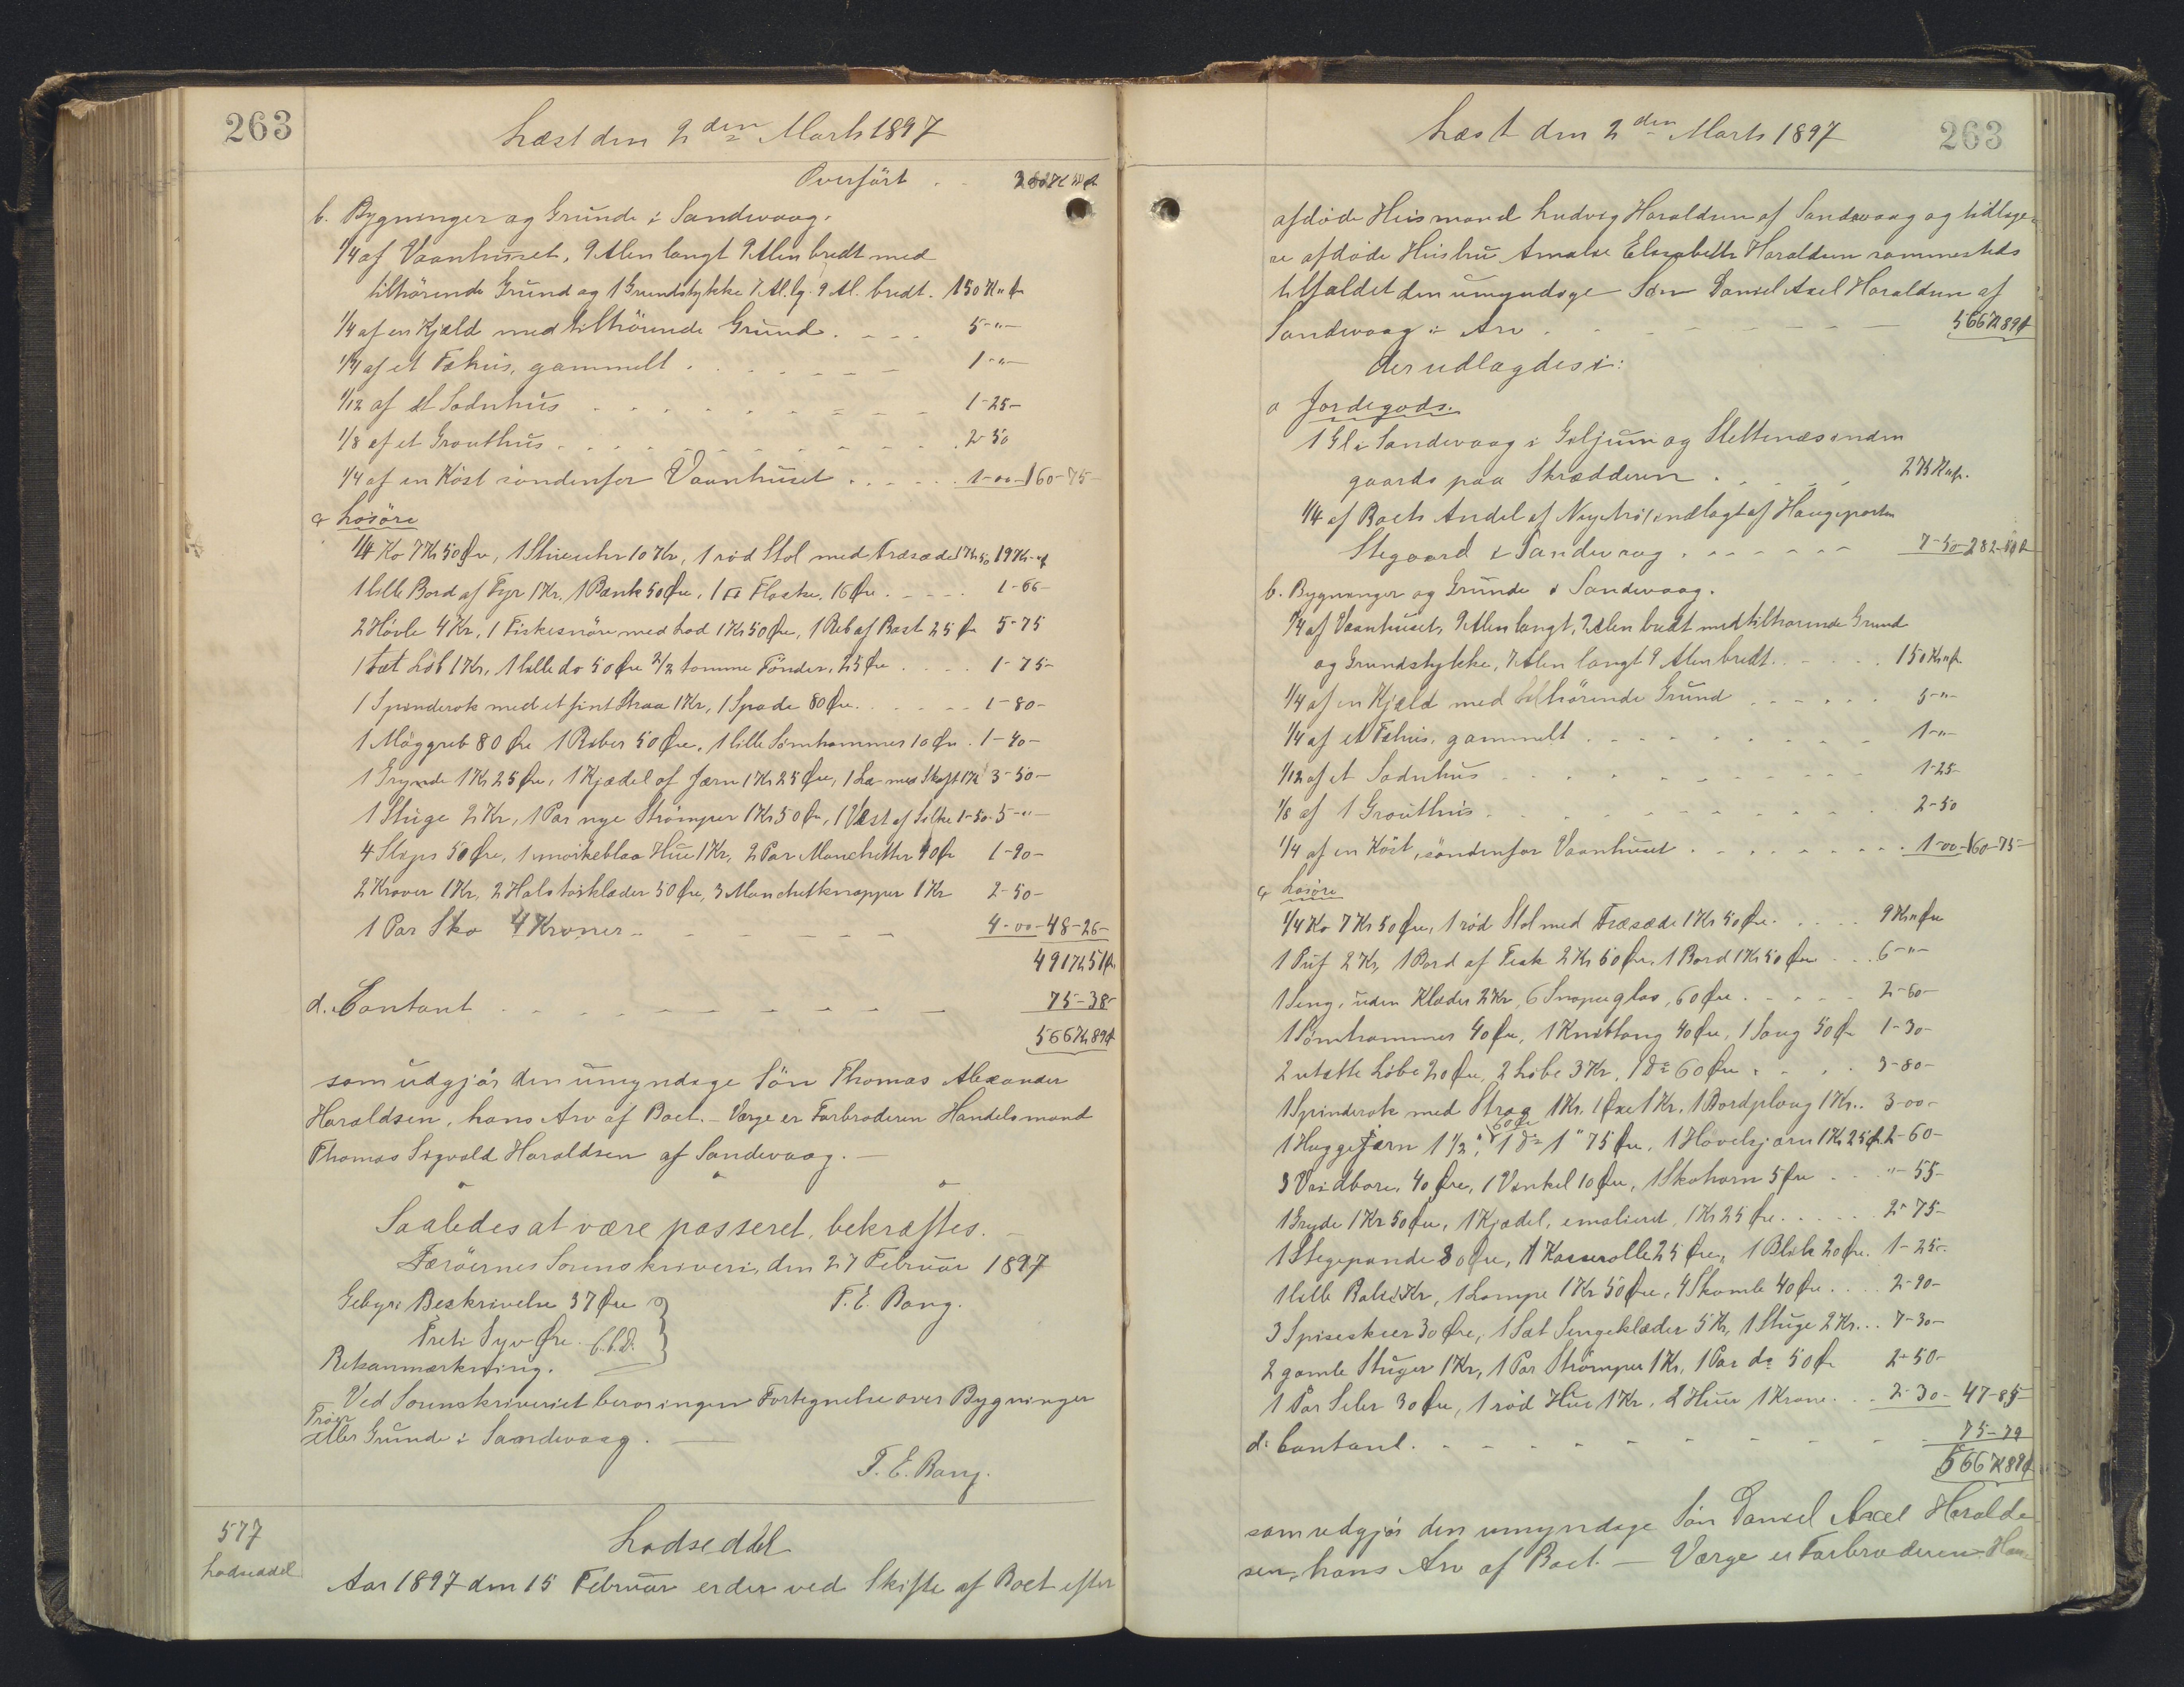 263
Læst den 2den Marts 1897
Overført . .
b. Bygninger og Grunde i Sandevaag.
1/4 af Vaanhuset, 9 Alen langt 9 Alen bredt med
tilhörende Grund og 1 Grundstykke 7 Al. lg. 9 Al. bredt. 150 Kr " Ø
1/4 af en Kjæld med tilhörende Grund. . . . 5-"-
1/4 af et Fæhus, gammelt . . . . . . . 1-"-
1/12 af et Sodnhus . . . . . . . . . 1-25-
1/8 af et Grouthus . . . . . . . . . 2-50
1/4 af en Köst söndenfor Vaanhuset . . . . . 1-00-160-75-
c Løsöre
1/4 Ko 7 Kr 50 Øre, 1 Stueuhr 10 Kr, 1 röd Stol med Træsæde 1 Kr 50 19 Kr-"Ø
1 lille Bord af Fyr 1 Kr, 1 Bænk 50 Øre, 1 Flaske, 16 Øre . . . . 1-66-
2 Hövle 4 Kr, 1 Fiskesnöre med Lod 1 Kr 50 Øre, 1 Reb af Bast 25 Ør 5-75
1 tæt Löb 1 Kr, 1 lille do 50 Øre 2/2 tomme Tönder, 25 Øre . . . . 1-75-
1 Spinderok med et fint Straa 1 Kr, 1 Spade 80 Øre. . . . . 1-80-
1 Møggreb 80 Øre 1 River 50 Øre, 1 lille Sömhammer 10 Øre . 1-40-
1 Grynde 1 Kr 25 Øre, 1 Kjædel af Jærn 1 Kr 25 Øre, 1 Le med Skaft 1 Kr 3-50-
1 Stuge 2 Kr, 1 Par nye Strömper 1 Kr 50 Ør, 1 Vest af Silke 1-50- 5-"-
4 Slips 50 Øre, 1 mörkeblaa Hue 1 Kr, 2 Par Manchetter 40 Ør 1-90-
2 Kraver 1 Kr, 2 Halstörklæder 50 Øre, 3 Manchetknapper 1 Kr 2-50-
1 Par Sko 4 Kroner . . . . . . 4-00-48-26-
491 Kr 51 Ø
d. Contant . . . . . . . . . 75-38-
566 Kr 89 Ø
som udgjör den umyndige Sön Thomas Alexander
Haraldsen, hans Arv af Boet. - Værge er Farbroderen Handelsmand
Thomas Sigvald Haraldsen af Sandevaag. -
Saaledes at være passeret, bekræftes. -
Færöernes Sorenskriveri, den 27 Februar 1897
Gebyr: Beskrivelse 37 Øre
T. E. Bang.
Treti Syv Øre
Retsanmærkning.
Ved Sorenskriveriet beror ingen Fortegnelse over Bygninger
eller Grunde i Sandevaag. -
T. E. Bang.
577
Lodseddel
Lodseddel
Aar 1897 den 15 Februar er der ved Skifte af Boet efter
Læst den 2den Marts 1897
263
afdöde Husmand Ludvig Haraldsen af Sandevaag og tidlige-
re afdöde Hustru Amalie Elisabeth Haraldsen sammesteds
tilfaldet den umyndige Sön Daniel Axel Haraldsen af
Sandevaag i Arv . . . . . . . 566 Kr 89 Ø
der udlagdes i:
a Jordegods.
1 Gl i Sandevaag i Giljum og Slettenæs inden
gaards paa Skrædderen . . . . . 275 Kr " Ø.
1/4 af Boets Andel af Nyetrö indlagt af Haugeparten
Stegaard i Sandevaag . . . . . . 7-50-282-50 Ø
b. Bygninger og Grunde i Sandevaag.
1/4 af Vaanhuset, 9 Alen langt, 9 Alen bredt med tilhörende Grund
og Grundstykke, 7 Alen langt 9 Alen bredt . . . . . 150 Kr " Ø
1/4 af en Kjæld med tilhörende Grund . . . . . 5-"-
1/4 af et Fæhus, gammelt . . . . . . . 1-"-
1/12 af et Sodnhus . . . . . . . . 1-25-
1/8 af 1 Grouthus . . . . . . . . 2-50
1/4 af en Köst, söndenfor Vaanhuset . . . . . . 1-00-160-75-
c Løsöre
1/4 Ko 7 Kr 50 Øre, 1 röd Stol med Træsæde 1 Kr 50 Øre. . . . 9 Kr " Øre
1 Puf 2 Kr, 1 Bord af Teak 2 Kr 50 Øre, 1 Bord 1 Kr 50 Øre . . 6-"-
1 Seng, uden Klæder 2 Kr, 6 Snapseglas, 60 Øre . . . . 2-60-
1 Sömhammer 40 Øre, 1 Knibtang 40 Øre, 1 Saug 50 Ør 1-30-
2 utætte Löbe 20 Øre, 2 Löbe 3 Kr, 1 do 60 Øre . . . 3-80-
1 Spinderok med Straa 1 Kr, 1 Øxe 1 Kr, 1 Bordplovg 1 Kr . . 3-00-
1 Huggejærn 1 1/2", 60 Øre 1 do 1" 75 Øre, 1 Höveljærn 1 Kr 25 Ø 2-60-
3 Vridbore, 40 Øre, 1 Vinkel 10 Øre, 1 Skohorn 5 Øre . . . "-55-
1 Gryde 1 Kr 50 Øre, 1 Kjædel, emalieret, 1 Kr 25 Øre. . . . 2-75-
1 Stegepande 80 Øre, 1 Kasserolle 25 Øre, 1 Blik 20 Øre. 1-25-
1 lille Balie 1 Kr, 1 Lampe 1 Kr 50 Øre, 4 Skamle 40 Øre . . . 2-90-
3 Spiseskeer 30 Øre, 1 Sæt Sengeklæder 5 Kr, 1 Stuge 2 Kr . . 7-30-
2 gamle Stuger 1 Kr, 1 Par Strömper 1 Kr, 1 Par do 50 Ør 2-50-
1 Par Seler 30 Øre, 1 röd Hue 1 Kr, 2 Huer 1 Krone . . . 2-30- 47-85-
d: Contant . . . . . . . . . . 75-79
566 Kr 89 Ø
som udgjör den umyndige Sön Daniel Axel Harald-
sen, hans Arv af Boet. - Værge er Farbroderen Han-